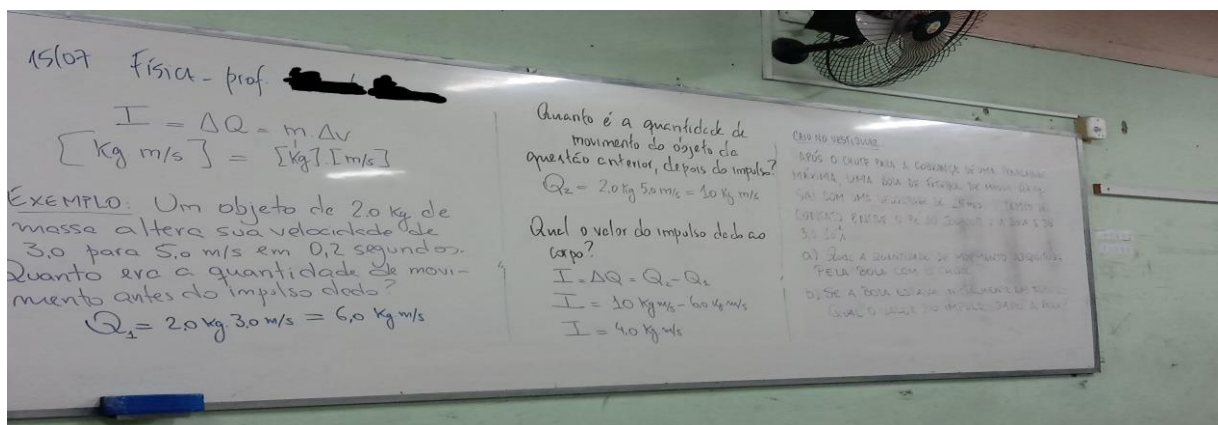 15/07 Física - prof.
I = ΔQ = m.Δv
[kg m/s] = [kg].[m/s]
EXEMPLO: Um objeto de 2.0 kg de
massa altera sua velocidade de
3.0 para 5.0 m/s em 0,2 segundos.
Quanto era a quantidade de movi-
mento antes do impulso dado?
Q₁ = 2,0 kg. 3,0 m/s = 6,0 kg m/s
Quanto é a quantidade de
movimento do objeto da
questão anterior, depois do impulso?
Q₂ = 2,0 kg 5,0 m/s = 10 kg m/s
Qual o valor do impulso dado ao
corpo?
I = ΔQ = Q₂ - Q₁
I = 10 kg m/s - 6,0 kg m/s
I = 4,0 kg m/s
CAIU NO VESTIBULAR
APÓS O CHUTE PARA A COBRANÇA DE UMA
MÁXIMA, UMA BOLA DE FUTEBOL DE MASSA
SAI COM UMA VELOCIDADE DE
CONTATO ENTRE O PÉ DO JOGADOR E A BOLA É DE
a) QUAL A QUANTIDADE DE MOVIMENTO
PELA BOLA COM O CHUTE
b) SE A BOLA ESTAVA
QUAL O VALOR DO IMPULSO